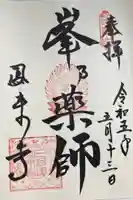 奉拝
令和五年
五月十三日
峯乃薬師
鳳来寺